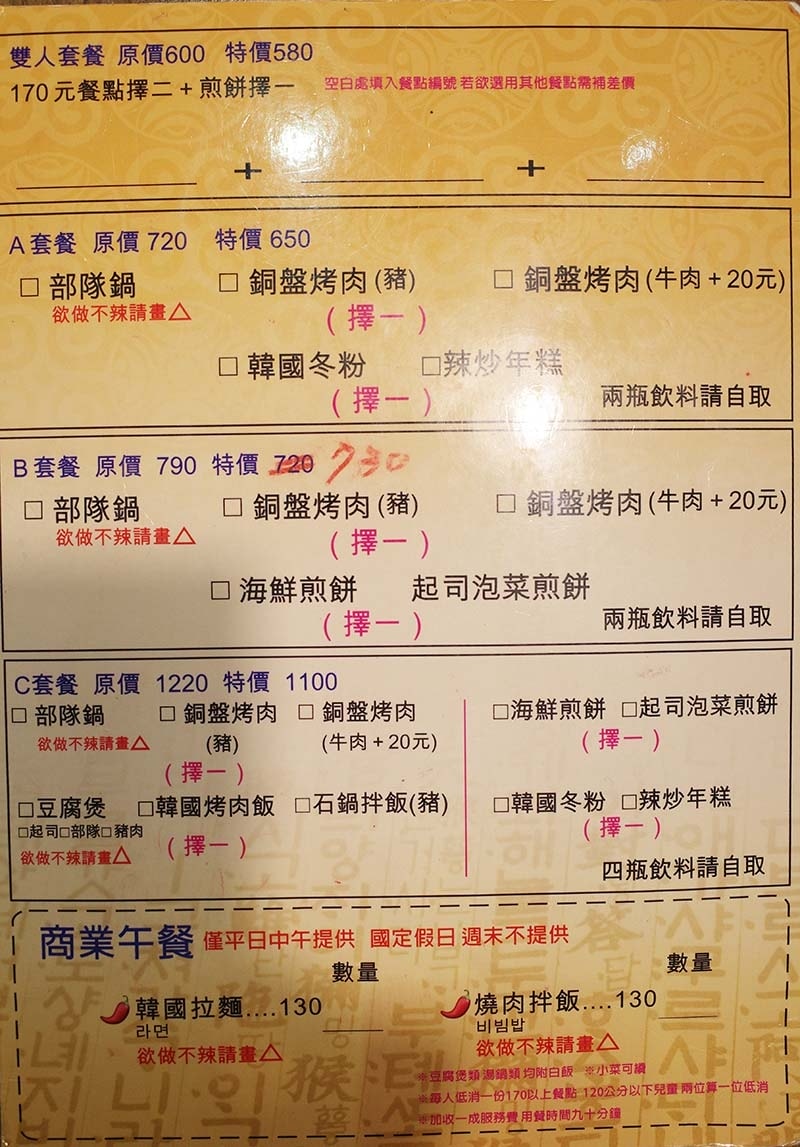 雙人套餐 原價600 特價580
170元餐點擇二+煎餅擇一 空白處填入餐點編號 若欲選用其他餐點需補差價
+ +
A套餐 原價720 特價650
□ 部隊鍋 □ 銅盤烤肉(豬) □ 銅盤烤肉(牛肉+20元)
欲做不辣請畫△ (擇一)
□ 韓國冬粉 □辣炒年糕
(擇一) 兩瓶飲料請自取
B套餐 原價 790 特價 720 730
□ 部隊鍋 □ 銅盤烤肉(豬) □ 銅盤烤肉(牛肉+20元)
欲做不辣請畫△ (擇一)
□ 海鮮煎餅 起司泡菜煎餅
(擇一) 兩瓶飲料請自取
C套餐 原價 1220 特價 1100
□ 部隊鍋 □ 銅盤烤肉 □ 銅盤烤肉 □海鮮煎餅 □起司泡菜煎餅
欲做不辣請畫△ (豬) (牛肉+20元) (擇一)
(擇一)
□豆腐煲 □韓國烤肉飯 □石鍋拌飯(豬) □韓國冬粉 □辣炒年糕
□起司□部隊□豬肉 (擇一)
欲做不辣請畫△ (擇一)
四瓶飲料請自取
商業午餐 僅平日中午提供 國定假日 週末不提供
數量 數量
韓國拉麵....130 燒肉拌飯....130
라면 비빔밥
欲做不辣請畫△ 欲做不辣請畫△
※豆腐煲類 湯鍋類 均附白飯 ※小菜可續
※每人低消一份170以上餐點 120公分以下兒童 兩位算一位低消
※加收一成服務費 用餐時間九十分鐘